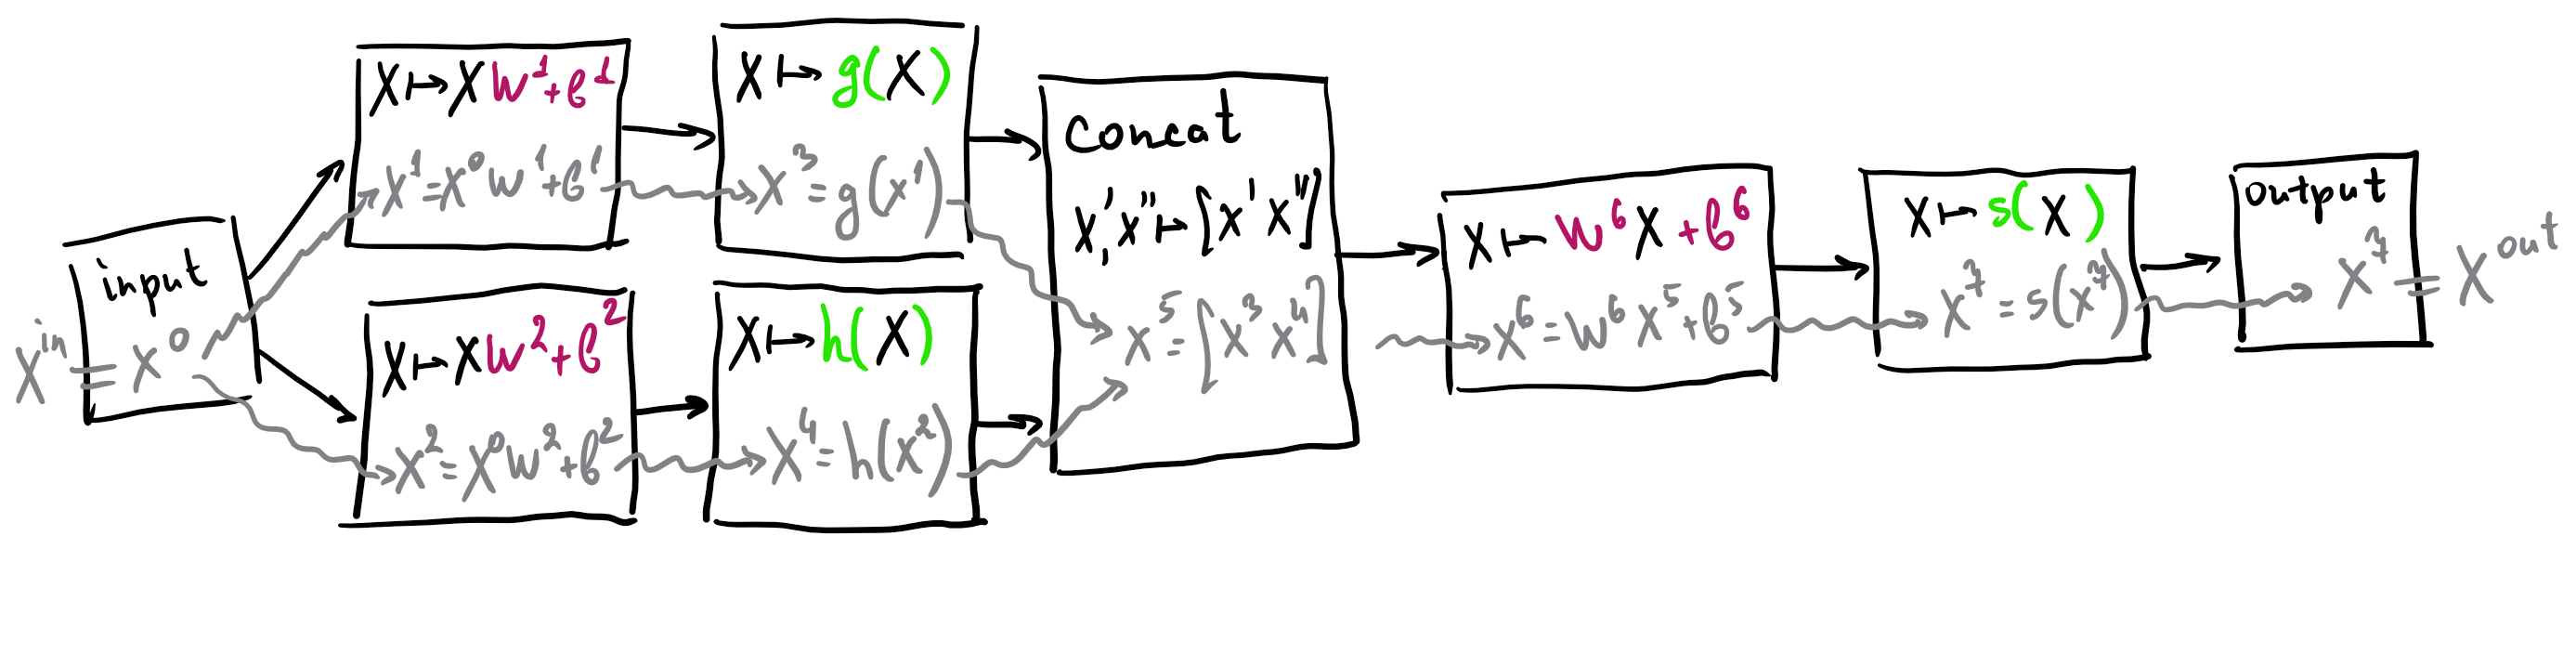 input
Xⁱⁿ = X⁰
X ↦ XW¹+b¹
X¹=X⁰W¹+b¹
X ↦ g(X)
X³=g(X¹)
X ↦ XW²+b²
X²=X⁰W²+b²
X ↦ h(X)
X⁴=h(X²)
Concat
X',X'' ↦ [X' X'']
X⁵=[X³ X⁴]
X ↦ W⁶X+b⁶
X⁶=W⁶X⁵+b⁵
X ↦ s(X)
X⁷=s(X⁷)
output
X⁷ = X^out